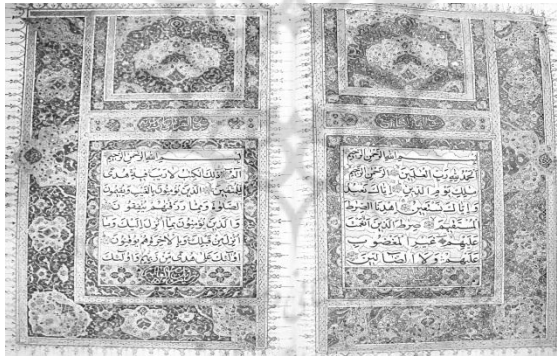 بسم الله الرحمن الرحيم
الحمد لله رب العلمين
ملك يوم الدين اياك نعبد
و اياك نستعين اهدنا الصرط
المستقيم صرط الذين انعمت
عليهم غير المغضوب
عليهم ولا الضالين
بسم الله الرحمن الرحيم
الم ذلك الكتب لا ريب فيه هدى
للمتقين الذين يؤمنون بالغيب ويقيمون
الصلوة ومما رزقنهم ينفقون
والذين يؤمنون بما انزل اليك وما
انزل من قبلك وبالاخرة هم يوقنون
اولئك على هدى من ربهم واولئك